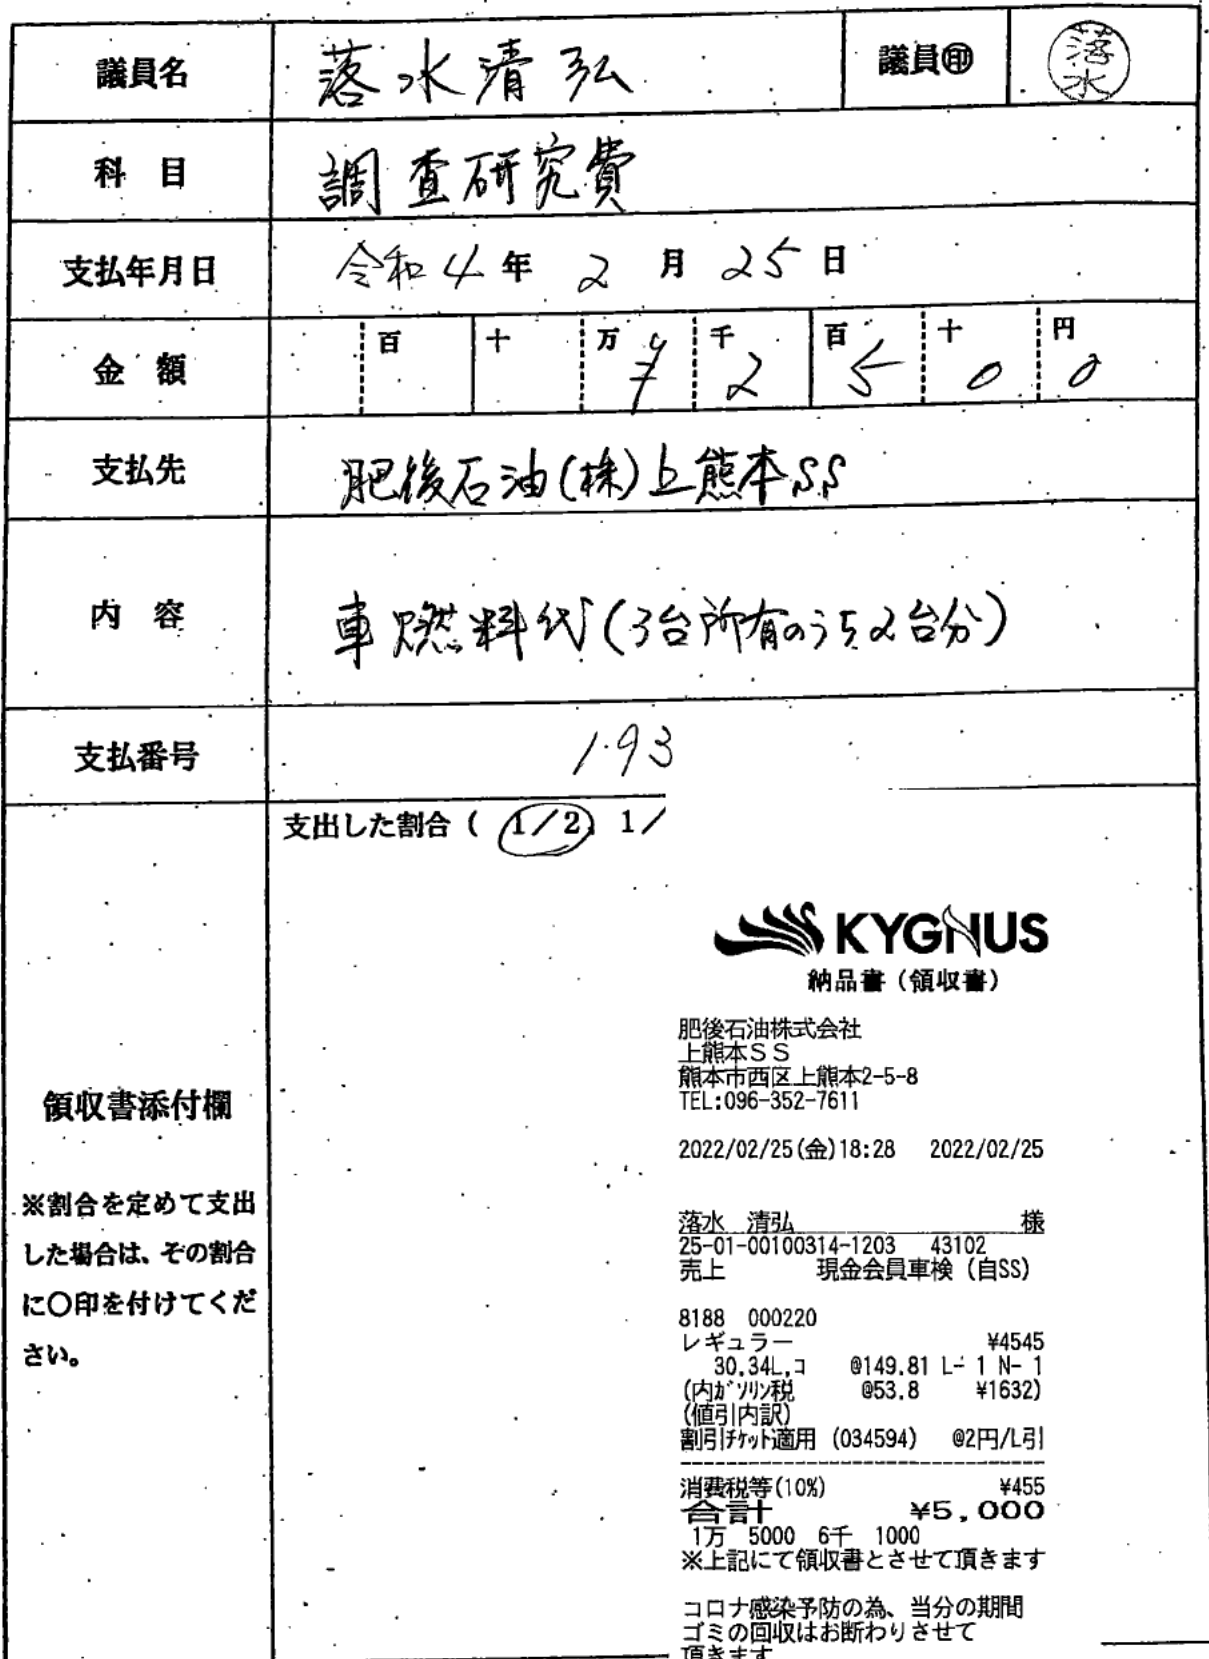 議員名 落水清弘 議員㊞ 落水
科目 調査研究費
支払年月日 令和4年2月25日
金額 百 十 万 ¥ 千 2 百 5 十 0 円 0
支払先 肥後石油(株)上熊本SS
内容 車燃料代(3台所有のうち2台分)
支払番号 193
支出した割合( 1/2, 1/
領収書添付欄
※割合を定めて支出
した場合は、その割合
に〇印を付けてくだ
さい。
KYGNUS
納品書(領収書)
肥後石油株式会社
上熊本SS
熊本市西区上熊本2-5-8
TEL:096-352-7611
2022/02/25(金)18:28 2022/02/25
落水 清弘 様
25-01-00100314-1203 43102
売上 現金会員車検(自SS)
8188 000220
レギュラー ¥4545
30.34L,コ @149.81 L- 1 N- 1
(内ガソリン税 @53.8 ¥1632)
(値引内訳)
割引チケット適用 (034594) @2円/L引
消費税等(10%) ¥455
合計 ¥5,000
1万 5000 6千 1000
※上記にて領収書とさせて頂きます
コロナ感染予防の為、当分の期間
ゴミの回収はお断わりさせて
頂きます